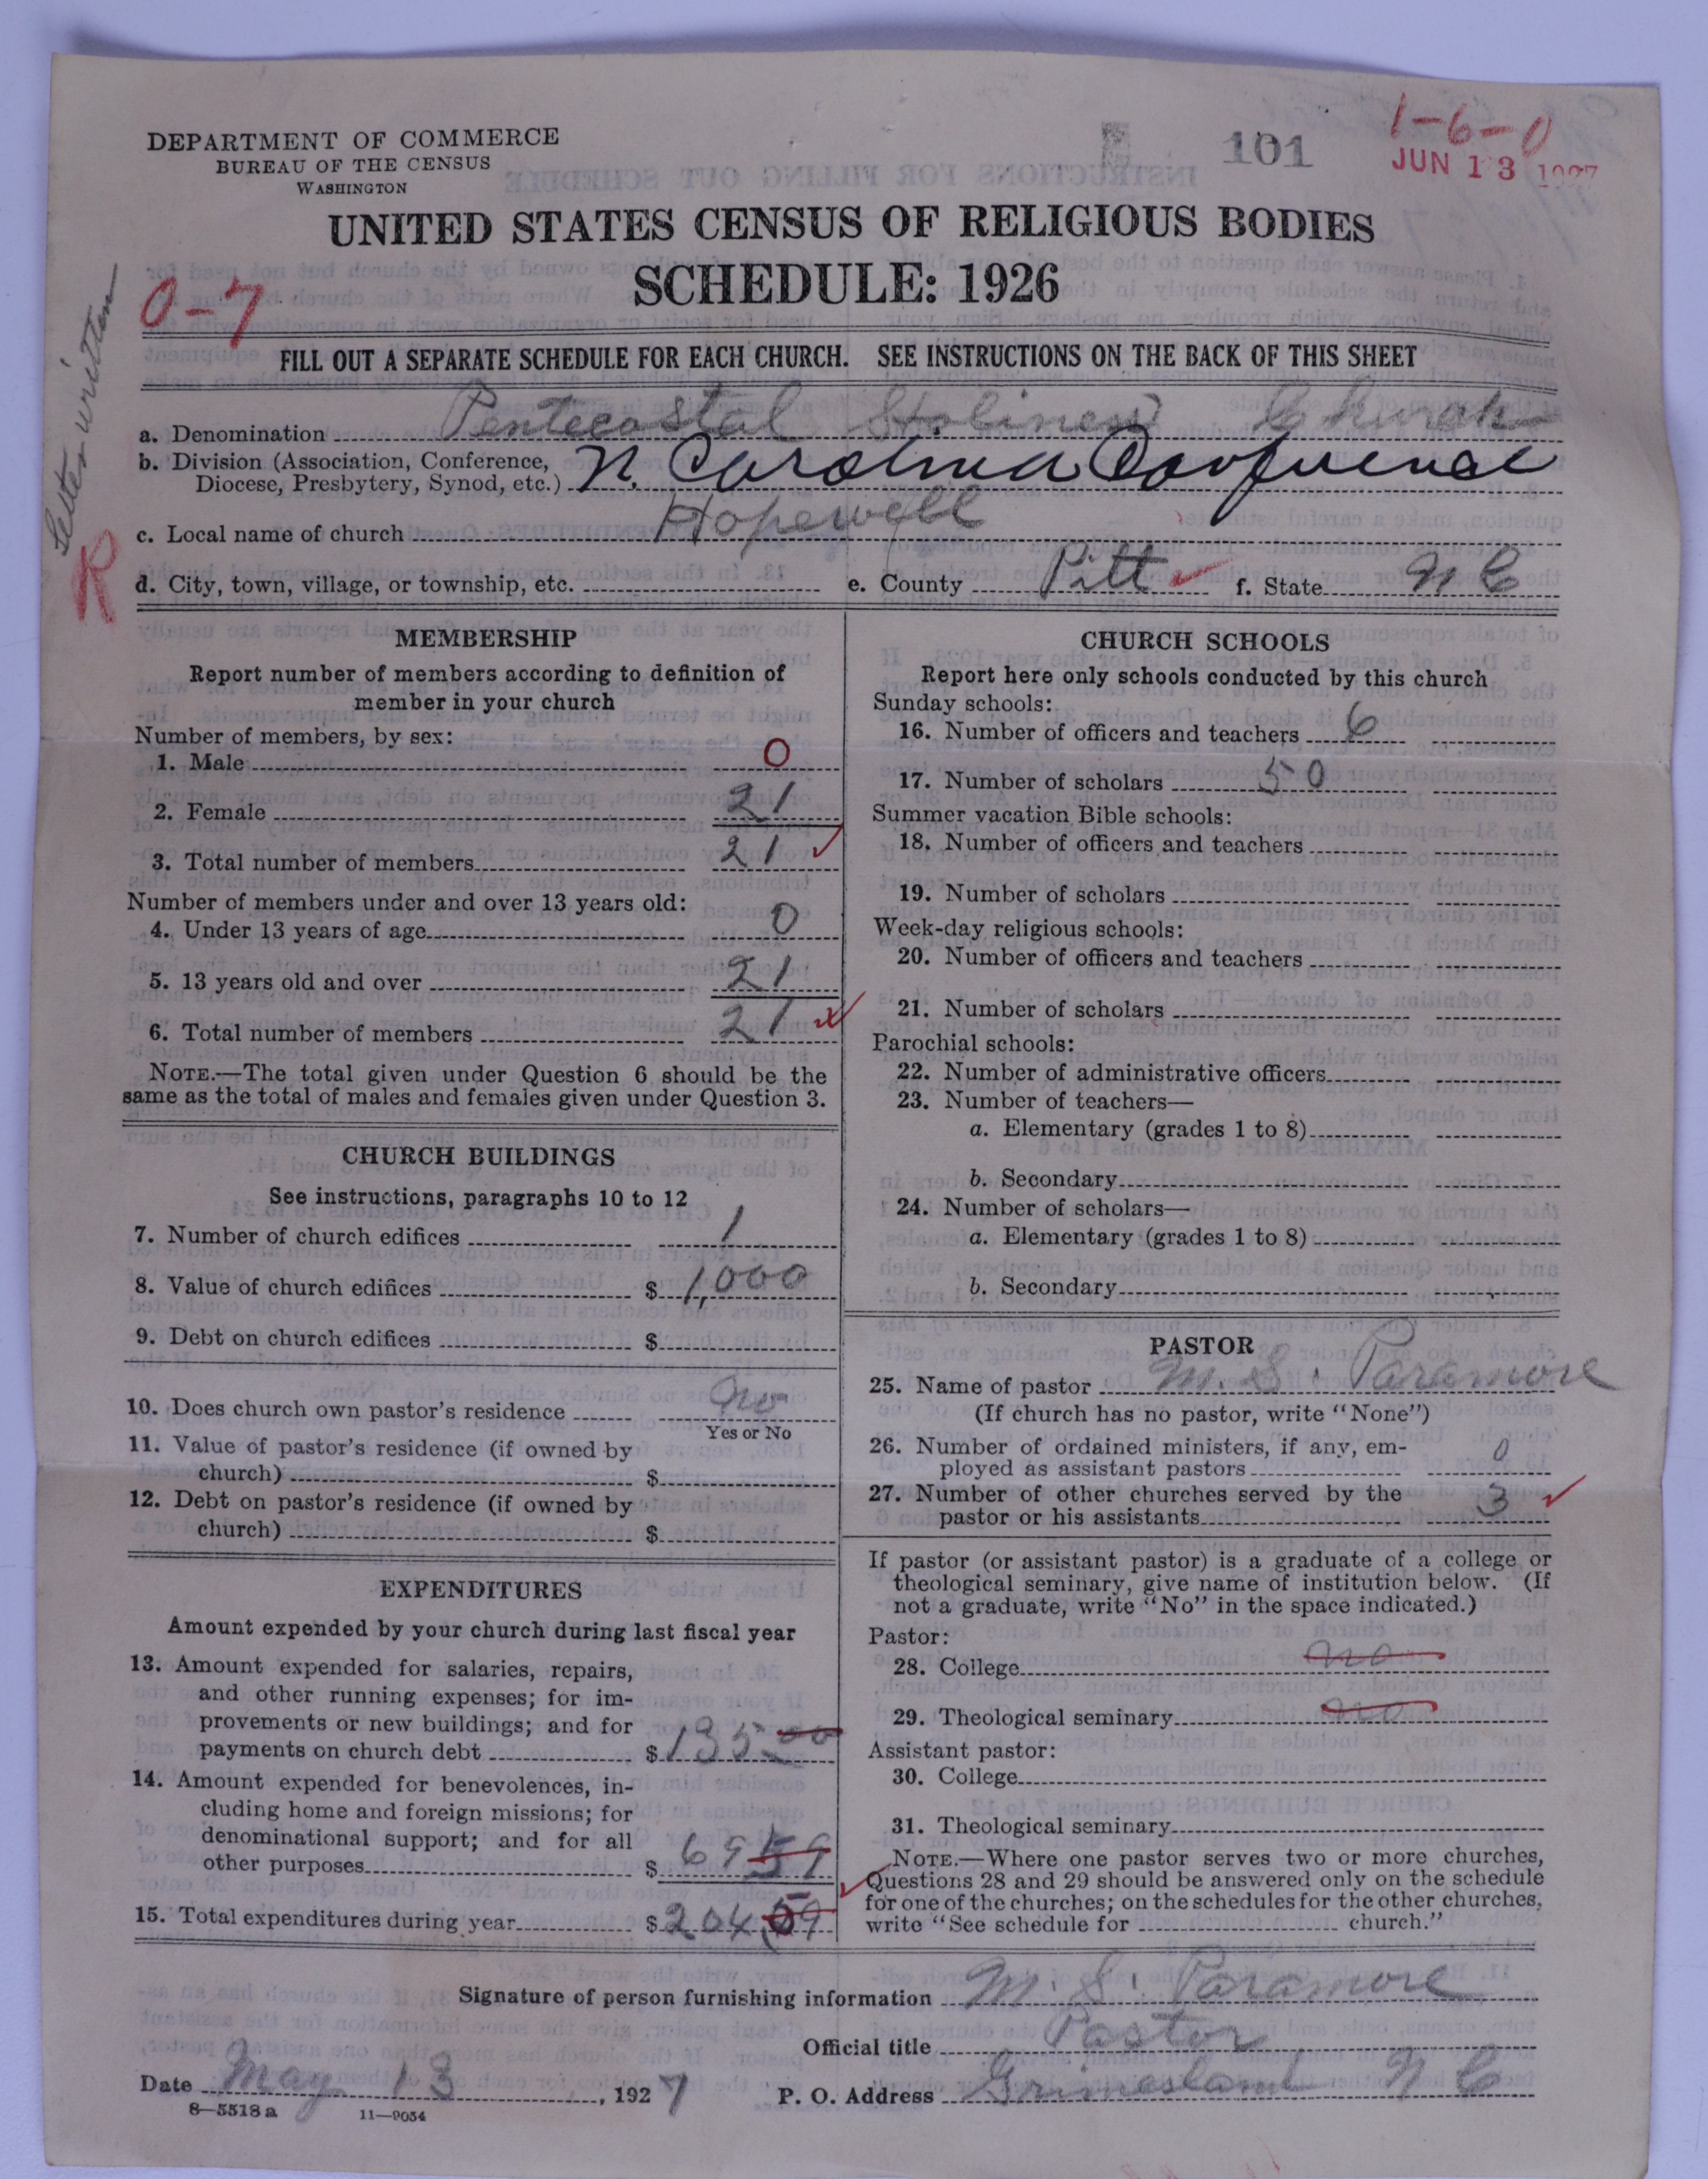 DEPARTMENT OF COMMERCE
BUREAU OF THE CENSUS
WASHINGTON
101
1-6-0
JUN 13 1927
UNITED STATES CENSUS OF RELIGIOUS BODIES
SCHEDULE: 1926
0-7
Letter written
R
FILL OUT A SEPARATE SCHEDULE FOR EACH CHURCH. SEE INSTRUCTIONS ON THE BACK OF THIS SHEET
a. Denomination Pentecostal Holiness Church
b. Division (Association, Conference, Diocese, Presbytery, Synod, etc.) N. Carolina Conference
c. Local name of church Hopewell
d. City, town, village, or township, etc. e. County Pitt f. State N C
MEMBERSHIP
Report number of members according to definition of
member in your church
Number of members, by sex:
1. Male 0
2. Female 21
3. Total number of members 21
Number of members under and over 13 years old:
4. Under 13 years of age 0
5. 13 years old and over 21
6. Total number of members 21
NOTE.—The total given under Question 6 should be the
same as the total of males and females given under Question 3.
CHURCH BUILDINGS
See instructions, paragraphs 10 to 12
7. Number of church edifices 1
8. Value of church edifices $ 1,000
9. Debt on church edifices $
10. Does church own pastor's residence No
Yes or No
11. Value of pastor's residence (if owned by
church) $
12. Debt on pastor's residence (if owned by
church) $
EXPENDITURES
Amount expended by your church during last fiscal year
13. Amount expended for salaries, repairs,
and other running expenses; for im-
provements or new buildings; and for
payments on church debt $ 135 00
14. Amount expended for benevolences, in-
cluding home and foreign missions; for
denominational support; and for all
other purposes $ 69 59
15. Total expenditures during year $ 204,59
CHURCH SCHOOLS
Report here only schools conducted by this church
Sunday schools:
16. Number of officers and teachers 6
17. Number of scholars 50
Summer vacation Bible schools:
18. Number of officers and teachers
19. Number of scholars
Week-day religious schools:
20. Number of officers and teachers
21. Number of scholars
Parochial schools:
22. Number of administrative officers
23. Number of teachers—
a. Elementary (grades 1 to 8)
b. Secondary
24. Number of scholars—
a. Elementary (grades 1 to 8)
b. Secondary
PASTOR
25. Name of pastor M. S. Paramore
(If church has no pastor, write "None")
26. Number of ordained ministers, if any, em-
ployed as assistant pastors 0
27. Number of other churches served by the
pastor or his assistants 3
If pastor (or assistant pastor) is a graduate of a college or
theological seminary, give name of institution below. (If
not a graduate, write "No" in the space indicated.)
Pastor:
28. College no
29. Theological seminary no
Assistant pastor:
30. College
31. Theological seminary
NOTE.—Where one pastor serves two or more churches,
Questions 28 and 29 should be answered only on the schedule
for one of the churches; on the schedules for the other churches,
write "See schedule for church."
Signature of person furnishing information M. S. Paramore
Official title Pastor
Date May 13, 1927 P. O. Address Grimesland N C
8—5518 a 11—9054